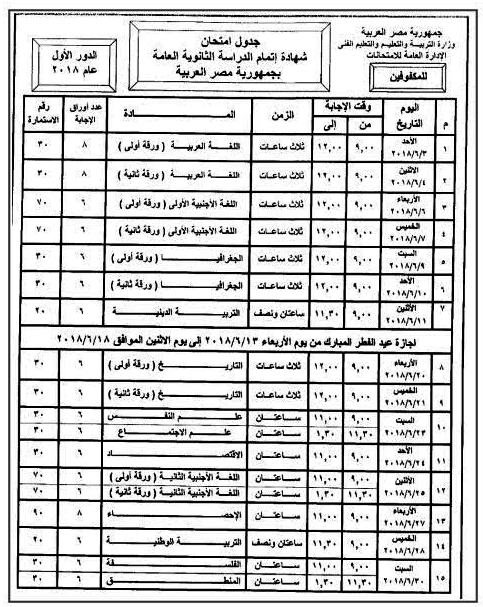 جمهورية مصر العربية
وزارة التربية والتعليم والتعليم الفنى
الإدارة العامة للامتحانات
للمكفوفين
جدول امتحان
شهادة إتمام الدراسة الثانوية العامة
بجمهورية مصر العربية
الدور الأول
عام ٢٠١٨
م اليوم التاريخ وقت الإجابة من إلى الزمن المــادة عدد أوراق الإجابة رقم الاستمارة
١ الأحد ٢٠١٨/٦/٣ ٩,٠٠ ١٢,٠٠ ثلاث ساعات اللغة العربية ( ورقة أولى ) ٨ ٣٠
٢ الاثنين ٢٠١٨/٦/٤ ٩,٠٠ ١٢,٠٠ ثلاث ساعات اللغة العربية ( ورقة ثانية ) ٨ ٣٠
٣ الأربعاء ٢٠١٨/٦/٦ ٩,٠٠ ١٢,٠٠ ثلاث ساعات اللغة الأجنبية الأولى ( ورقة أولى ) ٦ ٧٠
٤ الخميس ٢٠١٨/٦/٧ ٩,٠٠ ١٢,٠٠ ثلاث ساعات اللغة الأجنبية الأولى ( ورقة ثانية ) ٦ ٧٠
٥ السبت ٢٠١٨/٦/٩ ٩,٠٠ ١٢,٠٠ ثلاث ساعات الجغرافيا ( ورقة أولى ) ٦ ٣٠
٦ الأحد ٢٠١٨/٦/١٠ ٩,٠٠ ١٢,٠٠ ثلاث ساعات الجغرافيا ( ورقة ثانية ) ٦ ٣٠
٧ الأثنين ٢٠١٨/٦/١١ ٩,٠٠ ١١,٣٠ ساعتان ونصف التربية الدينية ٦ ٢٠
إجازة عيد الفطر المبارك من يوم الأربعاء ٢٠١٨/٦/١٣ إلى يوم الاثنين الموافق ٢٠١٨/٦/١٨
٨ الأربعاء ٢٠١٨/٦/٢٠ ٩,٠٠ ١٢,٠٠ ثلاث ساعات التاريخ ( ورقة أولى ) ٦ ٣٠
٩ الخميس ٢٠١٨/٦/٢١ ٩,٠٠ ١٢,٠٠ ثلاث ساعات التاريخ ( ورقة ثانية ) ٦ ٣٠
١٠ السبت ٢٠١٨/٦/٢٣ ٩,٠٠ ١١,٠٠ ساعتان علم النفس ٦ ٣٠
١١,٣٠ ١,٣٠ ساعتان علم الاجتماع ٦ ٣٠
١١ الأحد ٢٠١٨/٦/٢٤ ٩,٠٠ ١١,٠٠ ساعتان الاقتصاد ٦ ٣٠
١٢ الأثنين ٢٠١٨/٦/٢٥ ٩,٠٠ ١١,٠٠ ساعتان اللغة الأجنبية الثانية ( ورقة أولى ) ٦ ٧٠
١١,٣٠ ١,٣٠ ساعتان اللغة الأجنبية الثانية ( ورقة ثانية ) ٦ ٧٠
١٣ الأربعاء ٢٠١٨/٦/٢٧ ٩,٠٠ ١١,٠٠ ساعتان الإحصاء ٨ ٩٠
١٤ الخميس ٢٠١٨/٦/٢٨ ٩,٠٠ ١١,٣٠ ساعتان ونصف التربية الوطنية ٦ ٢٠
١٥ السبت ٢٠١٨/٦/٣٠ ٩,٠٠ ١١,٠٠ ساعتان الفلسفة ٦ ٣٠
١١,٣٠ ١,٣٠ ساعتان المنطق ٦ ٣٠